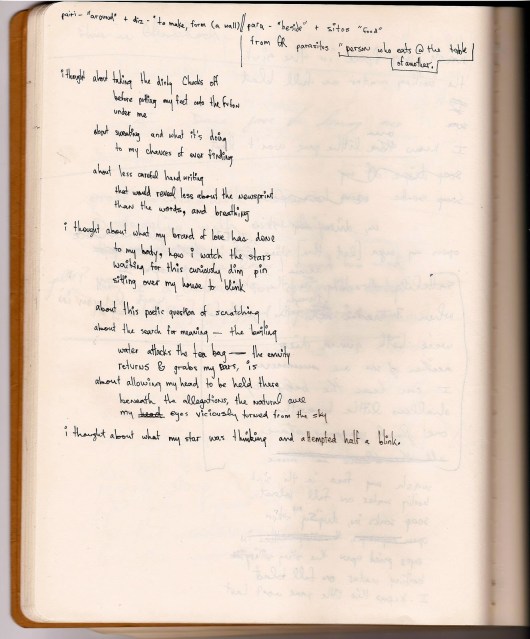 pairi- "around" + diz - "to make, form (a wall) para - "beside" + sitos "food"
from GR parasitos "person who eats @ the table
of another.
i thought about taking the dirty Chucks off
before putting my feet onto the
under me
about sweating and what it's doing
to my chances of ever finding
about less careful handwriting
that would reveal less about the newsprint
than the words, and breathing
i thought about what my brand of love has done
to my body, how i watch the stars
waiting for this curiously dim pin
sitting over my house to blink
about this poetic question of scratching
about the search for meaning — the boiling
water attacks the tea bag — the
returns & grabs my ears, is
about allowing my head to be held there
beneath the allegations, the natural awe
my head eyes viciously turned from the sky
i thought about what my star was thinking and attempted half a blink.